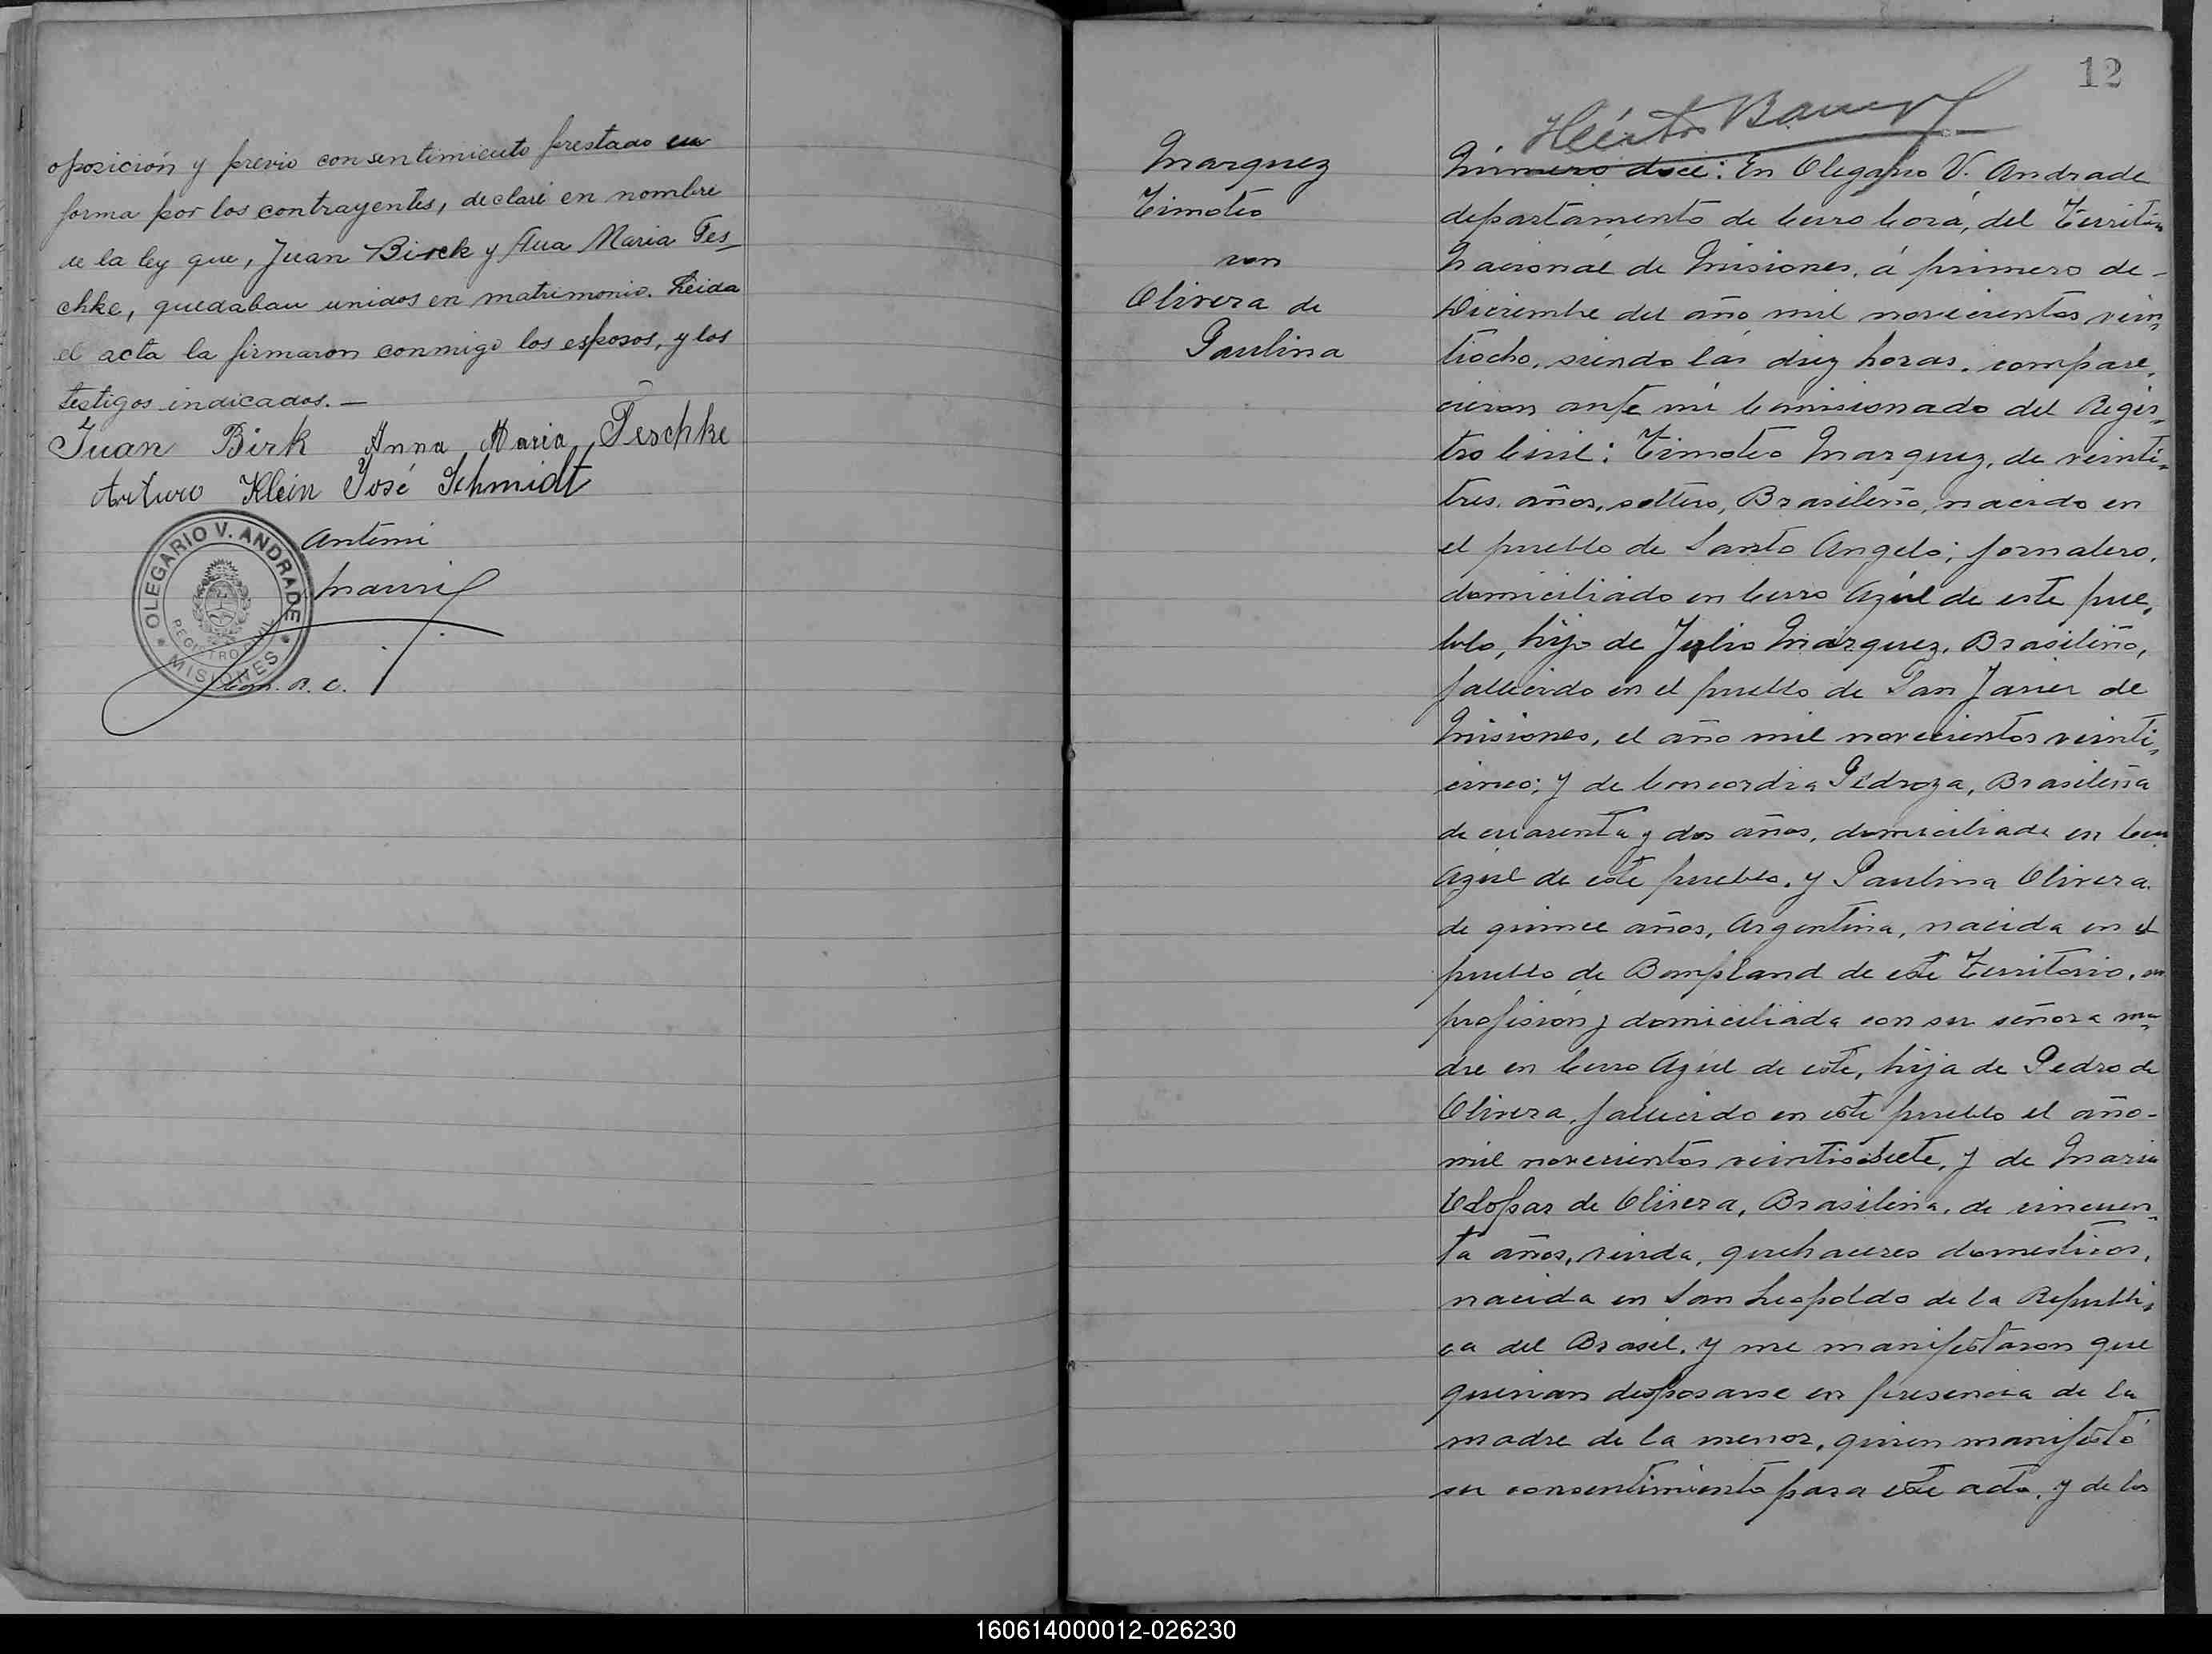 oposición y previo consentimiento prestado en
forma por los contrayentes, declaré en nombre
de la ley que, Juan Birck y Ana Maria Tes_
chke, quedaban unidos en matrimonio. Leida
el acta la firmaron conmigo los esposos, y los
testigos indicados. —
Juan Birk Anna Maria Teschke
Arturo Klein José Schmidt
OLEGARIO V. ANDRADE
REGISTRO CIVIL
MISIONES
Antemi
R. C.
12
Héctor
Marquez
Timoteo
con
Olivera de
Paulina
Número doce: En Olegario V. Andrade
departamento de Cerro Corá, del Territorio
Nacional de Misiones, á primero de -
Diciembre del año mil novecientos vein,
tiocho, siendo las diez horas, compare,
cieron ante mi Comisionado del Regis,
tro Civil: Timoteo Marquez, de veinti,
tres, años, soltero, Brasileño, nacido en
el pueblo de Santo Angelo; jornalero,
domiciliado en Cerro Azúl de este pue,
blo, hijo de Julio Márquez, Brasileño,
fallecido en el pueblo de San Javier de
Misiones, el año mil novecientos veinti,
cinco; y de Concordia Pedroza, Brasileña
de cuarenta y dos años, domiciliada en Cerro
Azúl de este pueblo, y Paulina Olivera
de quince años, Argentina, nacida en el
pueblo de Bompland de este Territorio, sin
profisión y domiciliada con su señora ma,
dre en Cerro Azúl de este, hija de Pedro de
Olivera, fallecido en este pueblo el año -
mil novecientos veintisiete, y de Maria
de Olivera, Brasileña, de cincuen,
ta años, viuda, quehaceres domesticos,
nacida en San Leopoldo de la Republi,
ca del Brasil, y me manifestaron que
querian desposarse en presencia de la
madre de la menor, quien manifestó
su consentimiento para este acto, y de los
160614000012-026230